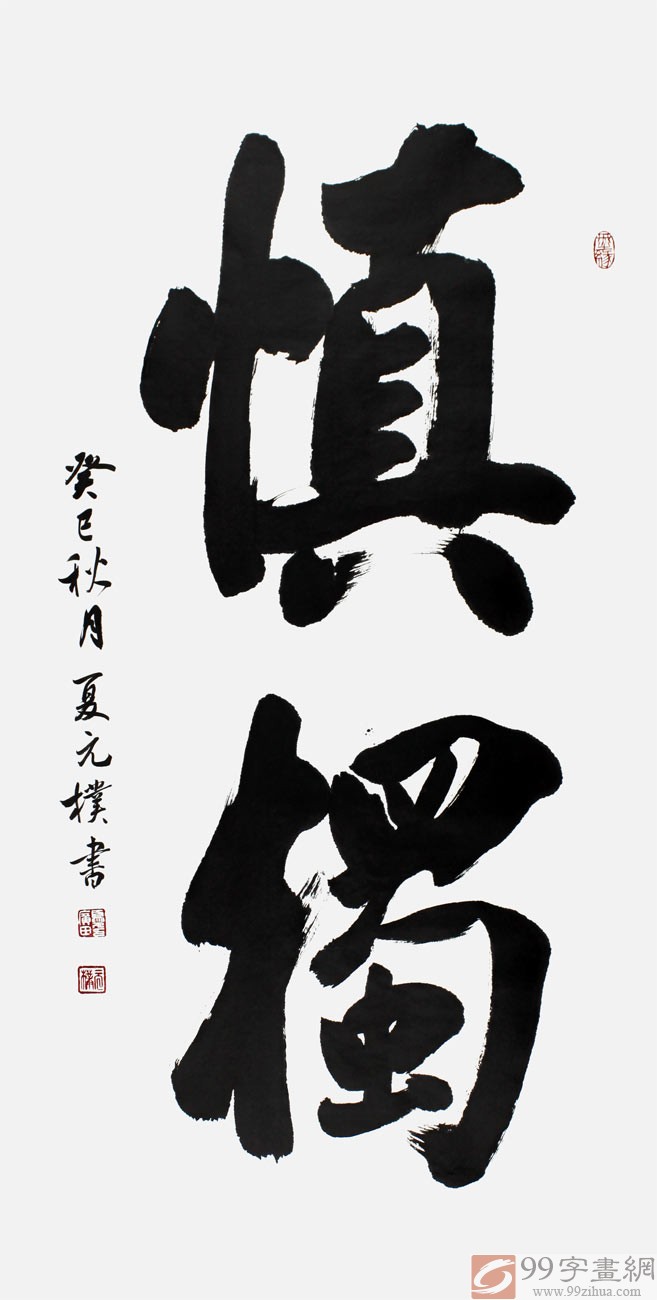 慎獨
癸巳秋月 夏元樸書
99字畫網
www.99zihua.com